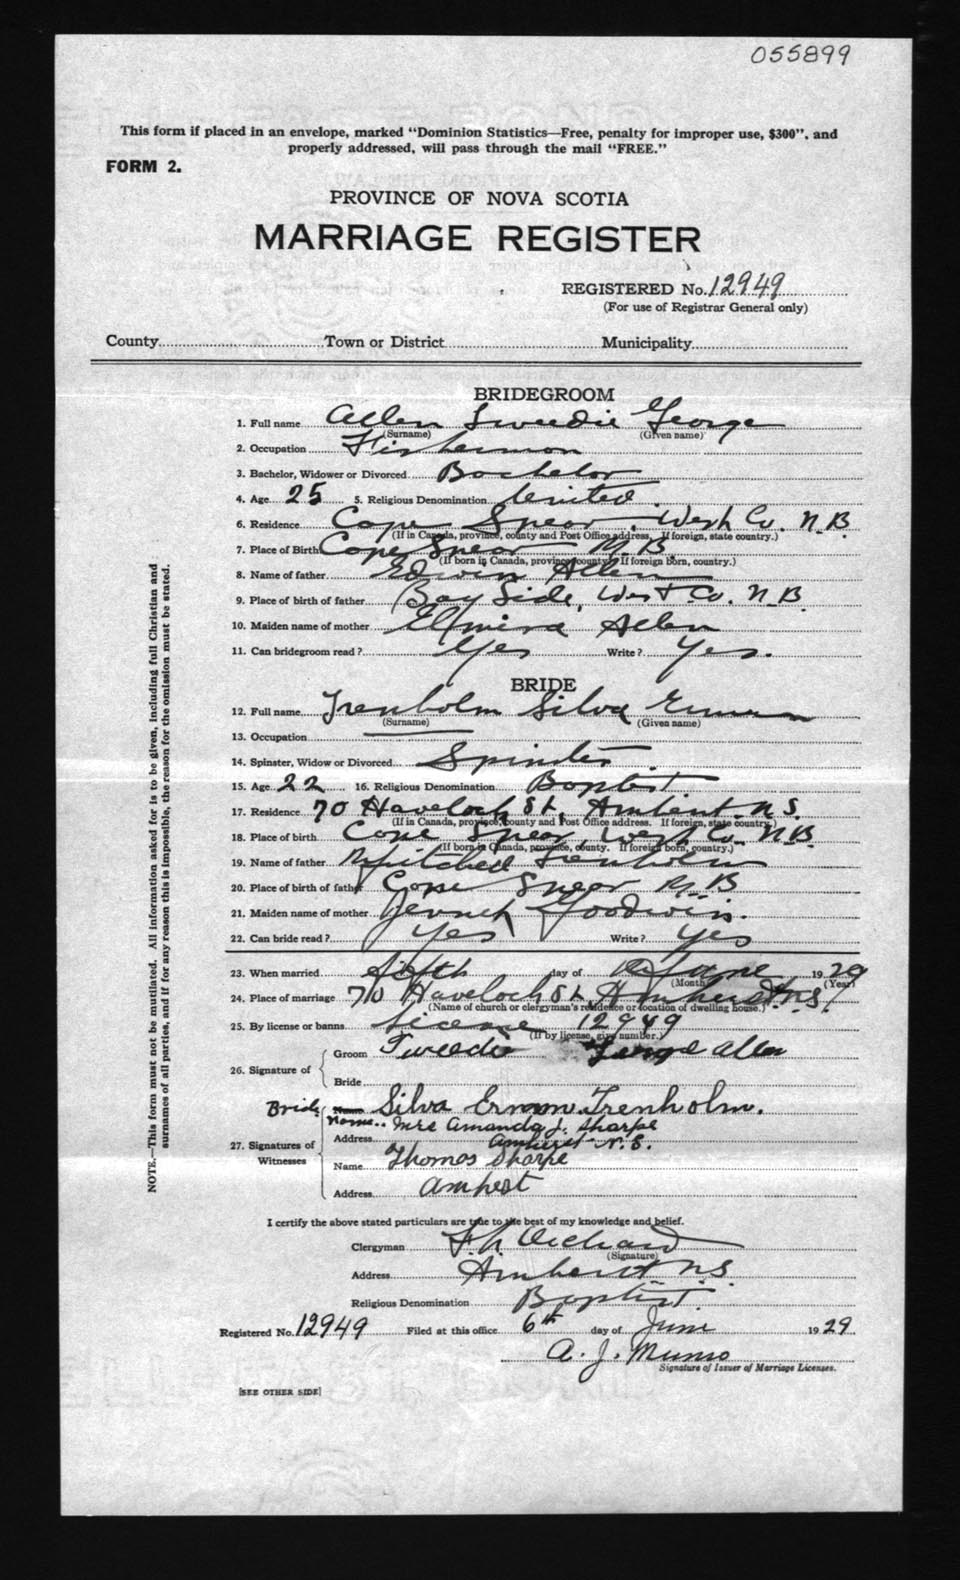 055899
This form if placed in an envelope, marked "Dominion Statistics—Free, penalty for improper use, $300", and
properly addressed, will pass through the mail "FREE."
FORM 2.
PROVINCE OF NOVA SCOTIA
MARRIAGE REGISTER
REGISTERED No. 12949
(For use of Registrar General only)
County Town or District Municipality
BRIDEGROOM
1. Full name Allen Tweedie George
(Surname) (Given name)
2. Occupation Fisherman
3. Bachelor, Widower or Divorced Bachelor
4. Age 25 5. Religious Denomination United
6. Residence Cape Spear, West Co. N.B.
(If in Canada, province, county and Post Office address. If foreign, state country.)
7. Place of Birth Cape Spear N.B.
(If born in Canada, province, county. If foreign born, country.)
8. Name of father Edwin Allen
9. Place of birth of father Bay Side, West. Co. N.B.
10. Maiden name of mother Elmira Allen
11. Can bridegroom read? Yes Write? Yes.
BRIDE
12. Full name Trenholm Silva
(Surname) (Given name)
13. Occupation
14. Spinster, Widow or Divorced Spinster
15. Age 22 16. Religious Denomination Baptist
17. Residence 70 Havelock St. Amherst. N.S.
(If in Canada, province, county and Post Office address. If foreign, state country.)
18. Place of birth Cape Spear, West Co. N.B.
(If born in Canada, province, county. If foreign born, country.)
19. Name of father Trenholm
20. Place of birth of father Cape Spear N.B.
21. Maiden name of mother Goodwin.
22. Can bride read? Yes Write? Yes
23. When married Sixth day of June 1929
(Month) (Year)
24. Place of marriage 70 Havelock St. Amherst N.S.
(Name of church or clergyman's residence or location of dwelling house.)
25. By license or banns License 12949
(If by license, give number.)
26. Signature of
Groom Tweedie George Allen
Bride
Bride Silva Trenholm.
27. Signatures of Witnesses
Name.. Mrs Amanda J. Sharpe
Address Amherst N.S.
Name Thomas Sharpe
Address Amherst
I certify the above stated particulars are true to the best of my knowledge and belief.
Clergyman Orchard
(Signature)
Address Amherst N.S.
Religious Denomination Baptist.
Registered No. 12949 Filed at this office 6th day of June 1929
A. J. Munro
Signature of Issuer of Marriage Licenses.
[SEE OTHER SIDE]
NOTE.—This form must not be mutilated. All information asked for is to be given, including full Christian and
surnames of all parties, and if for any reason this is impossible, the reason for the omission must be stated.